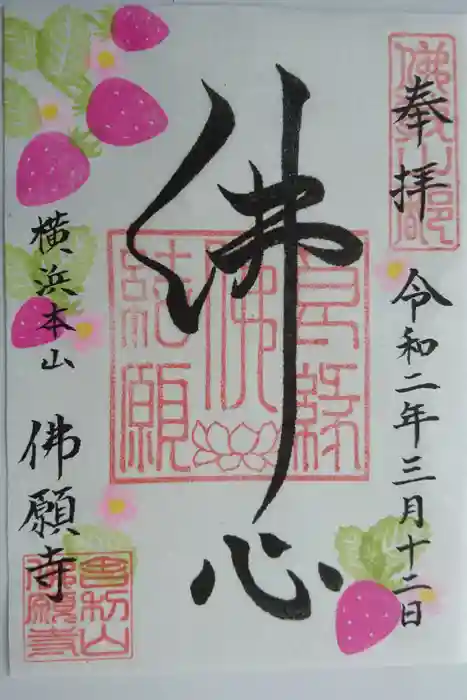 奉拝
令和二年三月十二日
佛心
横浜本山
佛願寺